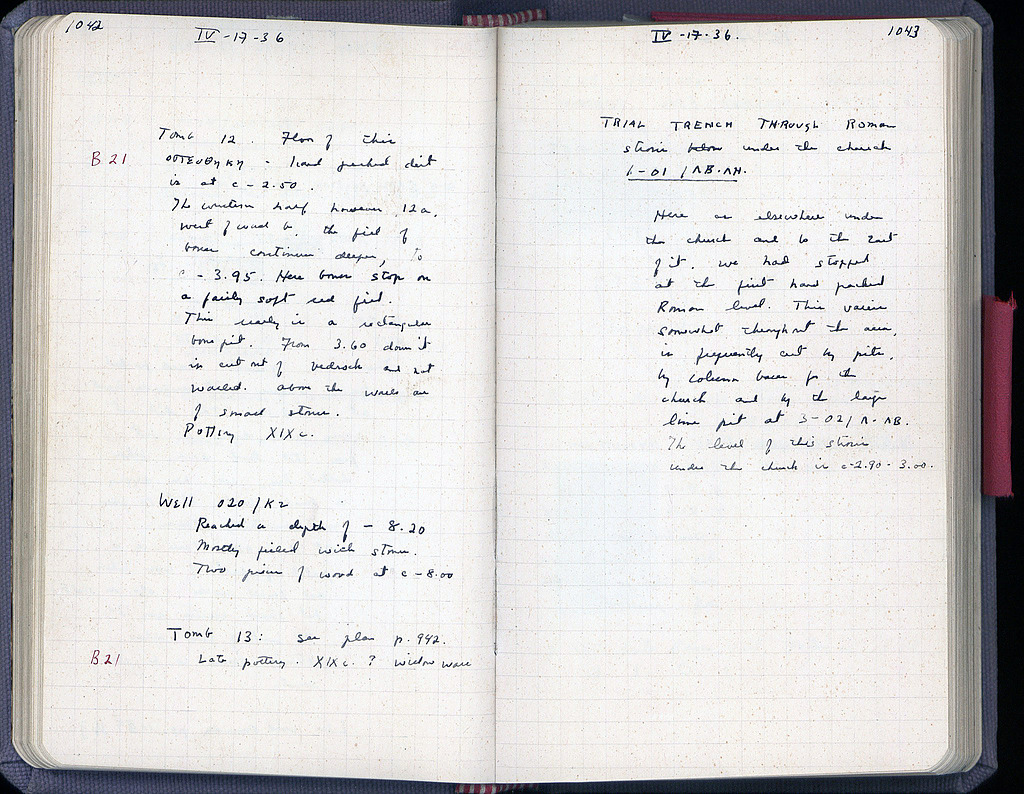 1042
IV-17-36
Tomb 12. Floor of this
B 21
ΟΣΤΕΟΘΗΚΗ - hard packed dirt
is at c - 2.50.
The western half however, 12a,
west of wall b, the fill of
bones continues deeper, to
c - 3.95. Here bones stop on
a fairly soft red fill.
This really is a rectangular
bone pit. From 3.60 down it
is cut out of bedrock and not
walled. Above the walls are
of small stones.
Pottery XIX c.
Well 020/K2
Reached a depth of - 8.20
Mostly filled with stones.
Two pieces of wood at c - 8.00
Tomb 13: see plan p. 942.
B 21
Late pottery. XIX c. ? ware
IV-17-36.
1043
TRIAL TRENCH THROUGH Roman
strosis below under the church
/ΛB-ΛH.
Here as elsewhere under
the church and to the East
of it, we had stopped
at the first hard packed
Roman level. This varies
somewhat throughout the area,
is frequently cut by pits,
by column bases for the
church and by the large
lime pit at 3-02/Λ-ΛB.
The level of this strosis
under the church is c-2.90-3.00.